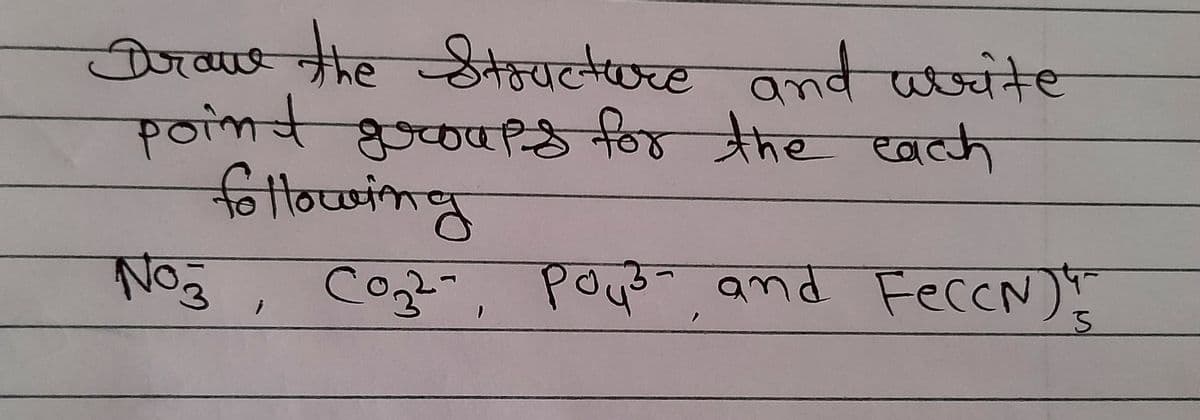 Draw the Structure and write
point groups for the each
following
NO₃⁻, CO₃²⁻, PO₄³⁻, and Fe(CN)₅⁴⁻